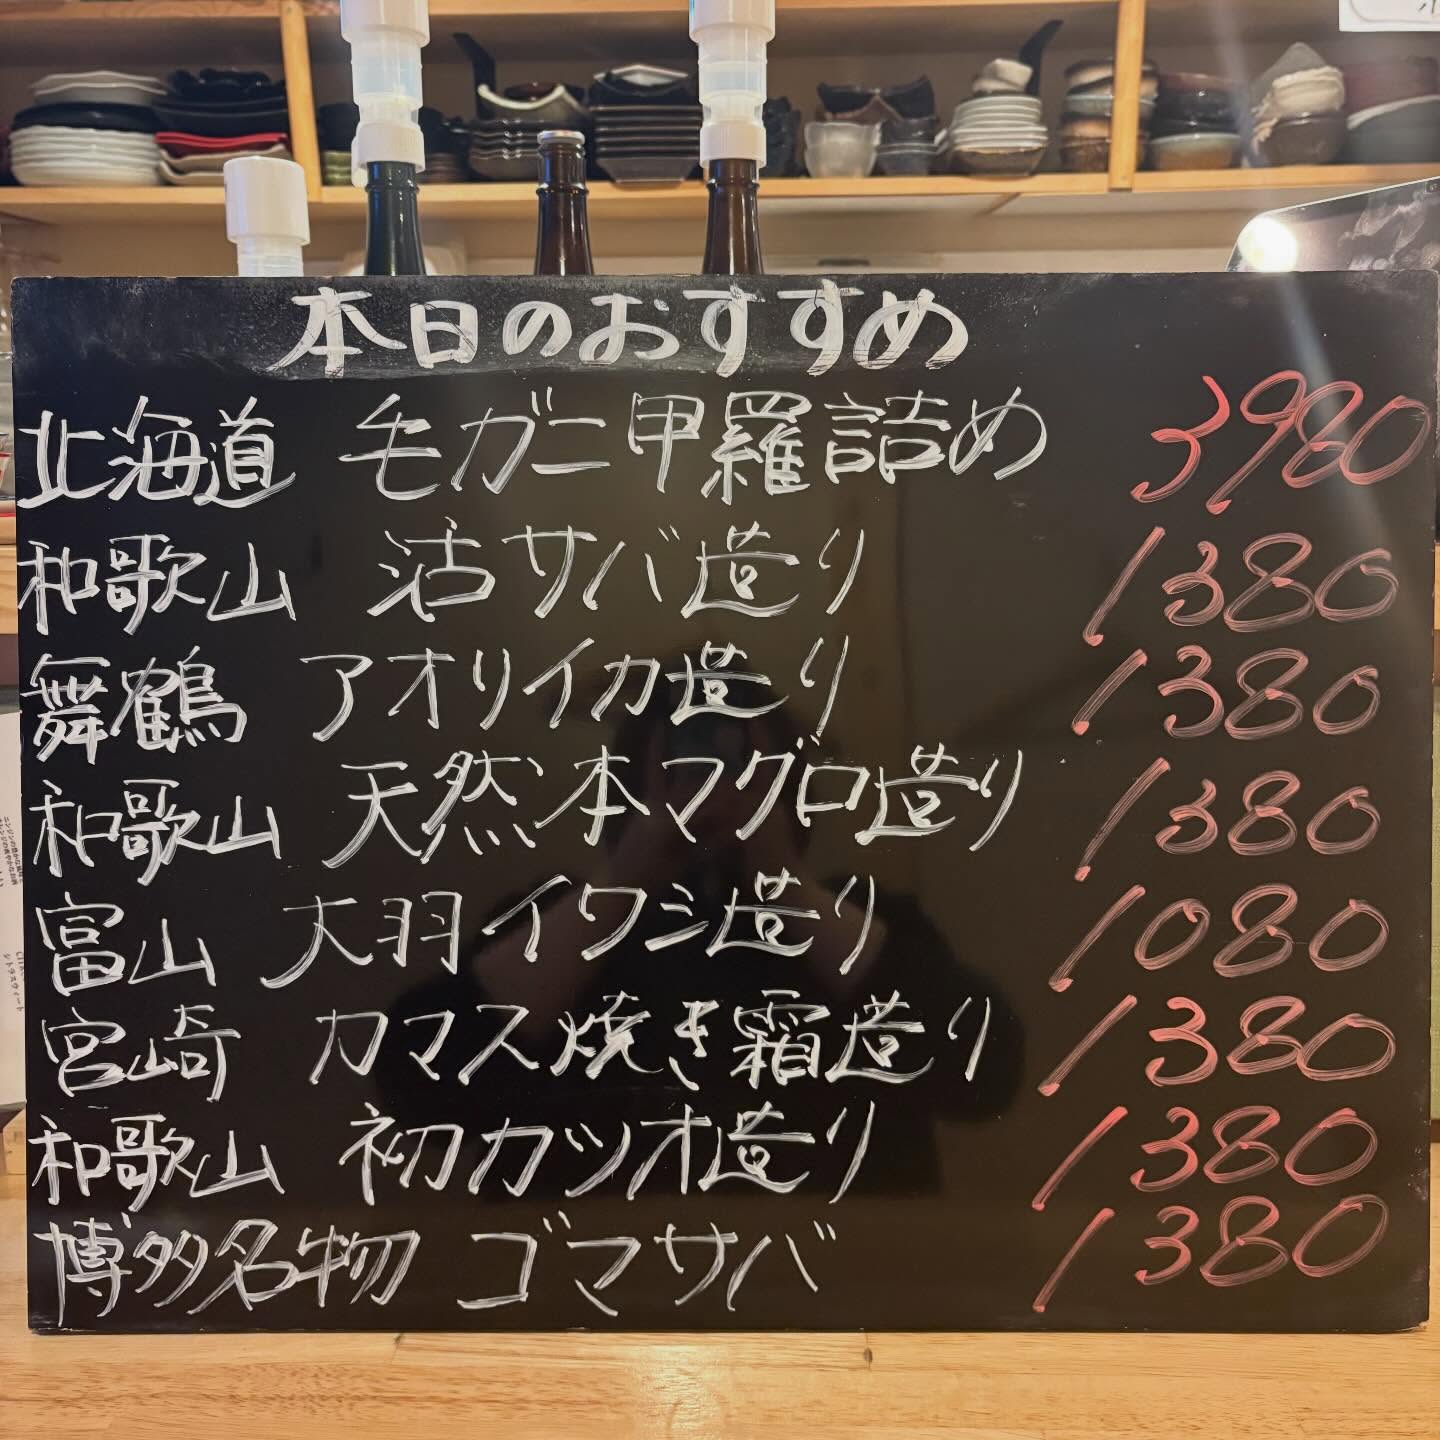 本日のおすすめ
北海道 毛ガニ甲羅詰め 3980
和歌山 活サバ造り 1380
舞鶴 アオリイカ造り 1380
和歌山 天然本マグロ造り 1380
富山 大羽イワシ造り 1080
宮崎 カマス焼き霜造り 1380
和歌山 初カツオ造り 1380
博多名物 ゴマサバ 1380